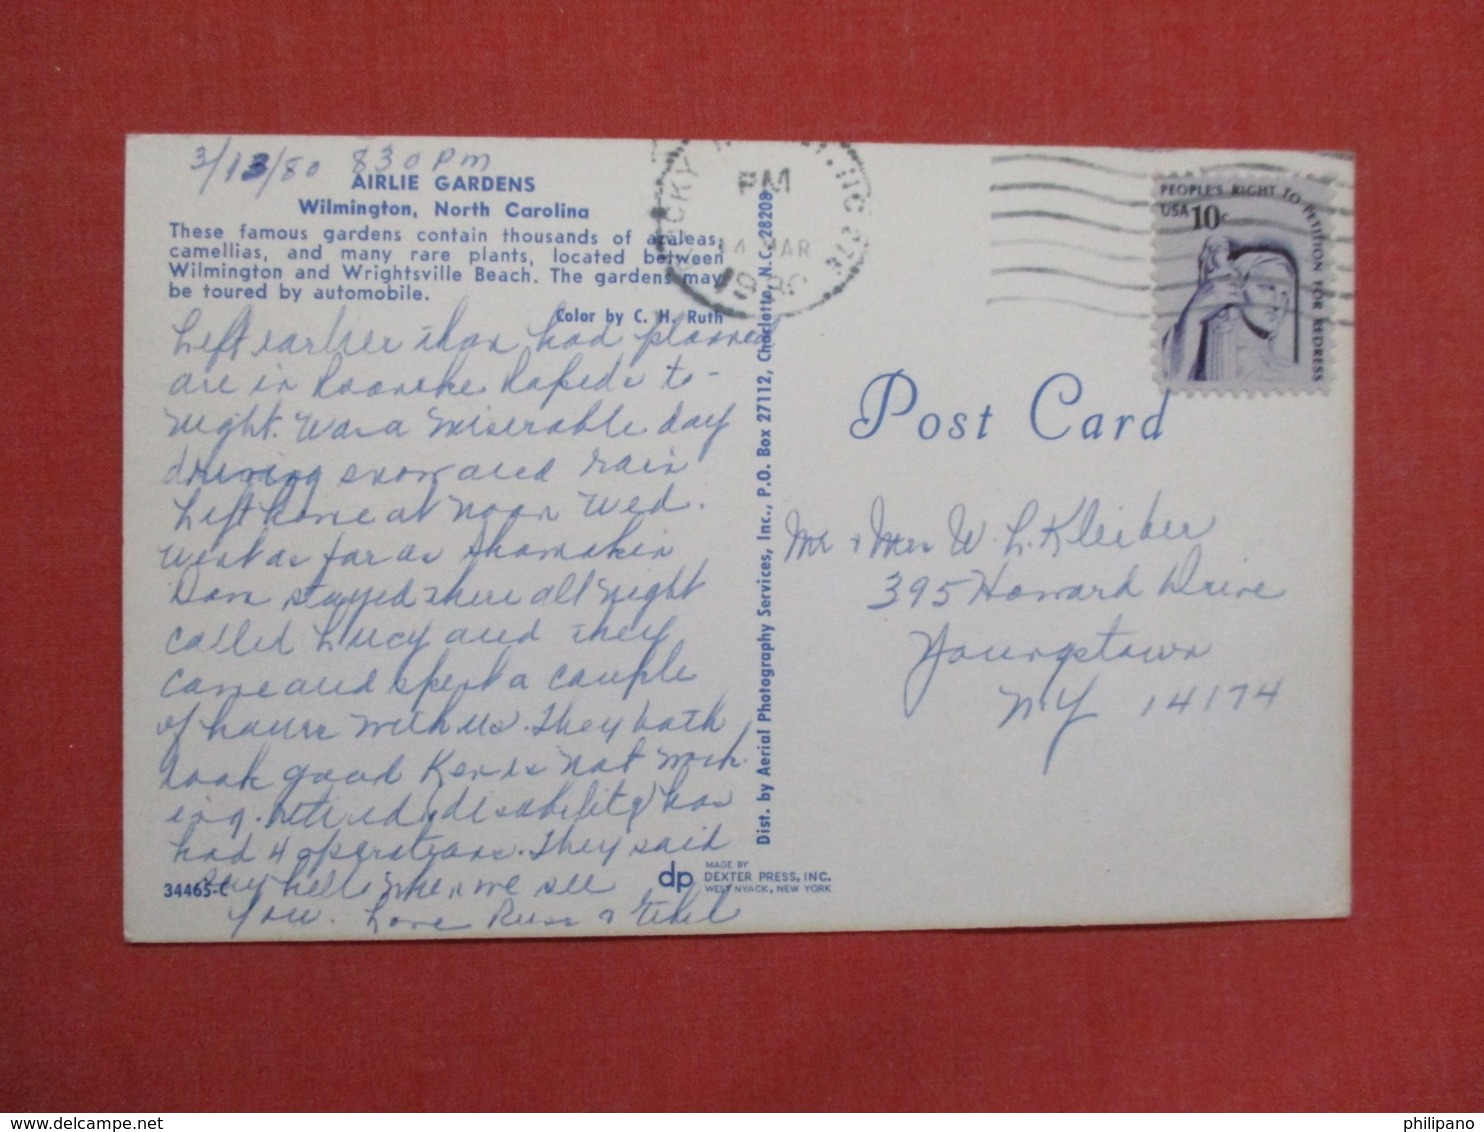 3/13/80 830 PM
AIRLIE GARDENS
Wilmington, North Carolina
These famous gardens contain thousands of azaleas,
camellias, and many rare plants, located between
Wilmington and Wrightsville Beach. The gardens may
be toured by automobile.
Color by C. H. Ruth
Left earlier than had planned
are in Roanoke Rapids to-
night. Was a miserable day
driving snow and rain
Left home at noon Wed.
went as far as Shamokin
Dam stayed there all night
called Lucy and they
came and spent a couple
of hours with us. They both
look good Ken is not work-
ing. retired (disability) has
had 4 operations. They said
say hello when we see
you. Love Russ & Ethel
34465-C
Dist. by Aerial Photography Services, Inc., P.O. Box 27112, Charlotte, N.C. 28208
dp MADE BY
DEXTER PRESS, INC.
WEST NYACK, NEW YORK
PM
14 MAR
1980
PEOPLE'S RIGHT TO PETITION FOR REDRESS
USA 10c
Post Card
Mr & Mrs W. L. Kleiber
395 Howard Drive
Youngstown
NY 14174
philipano